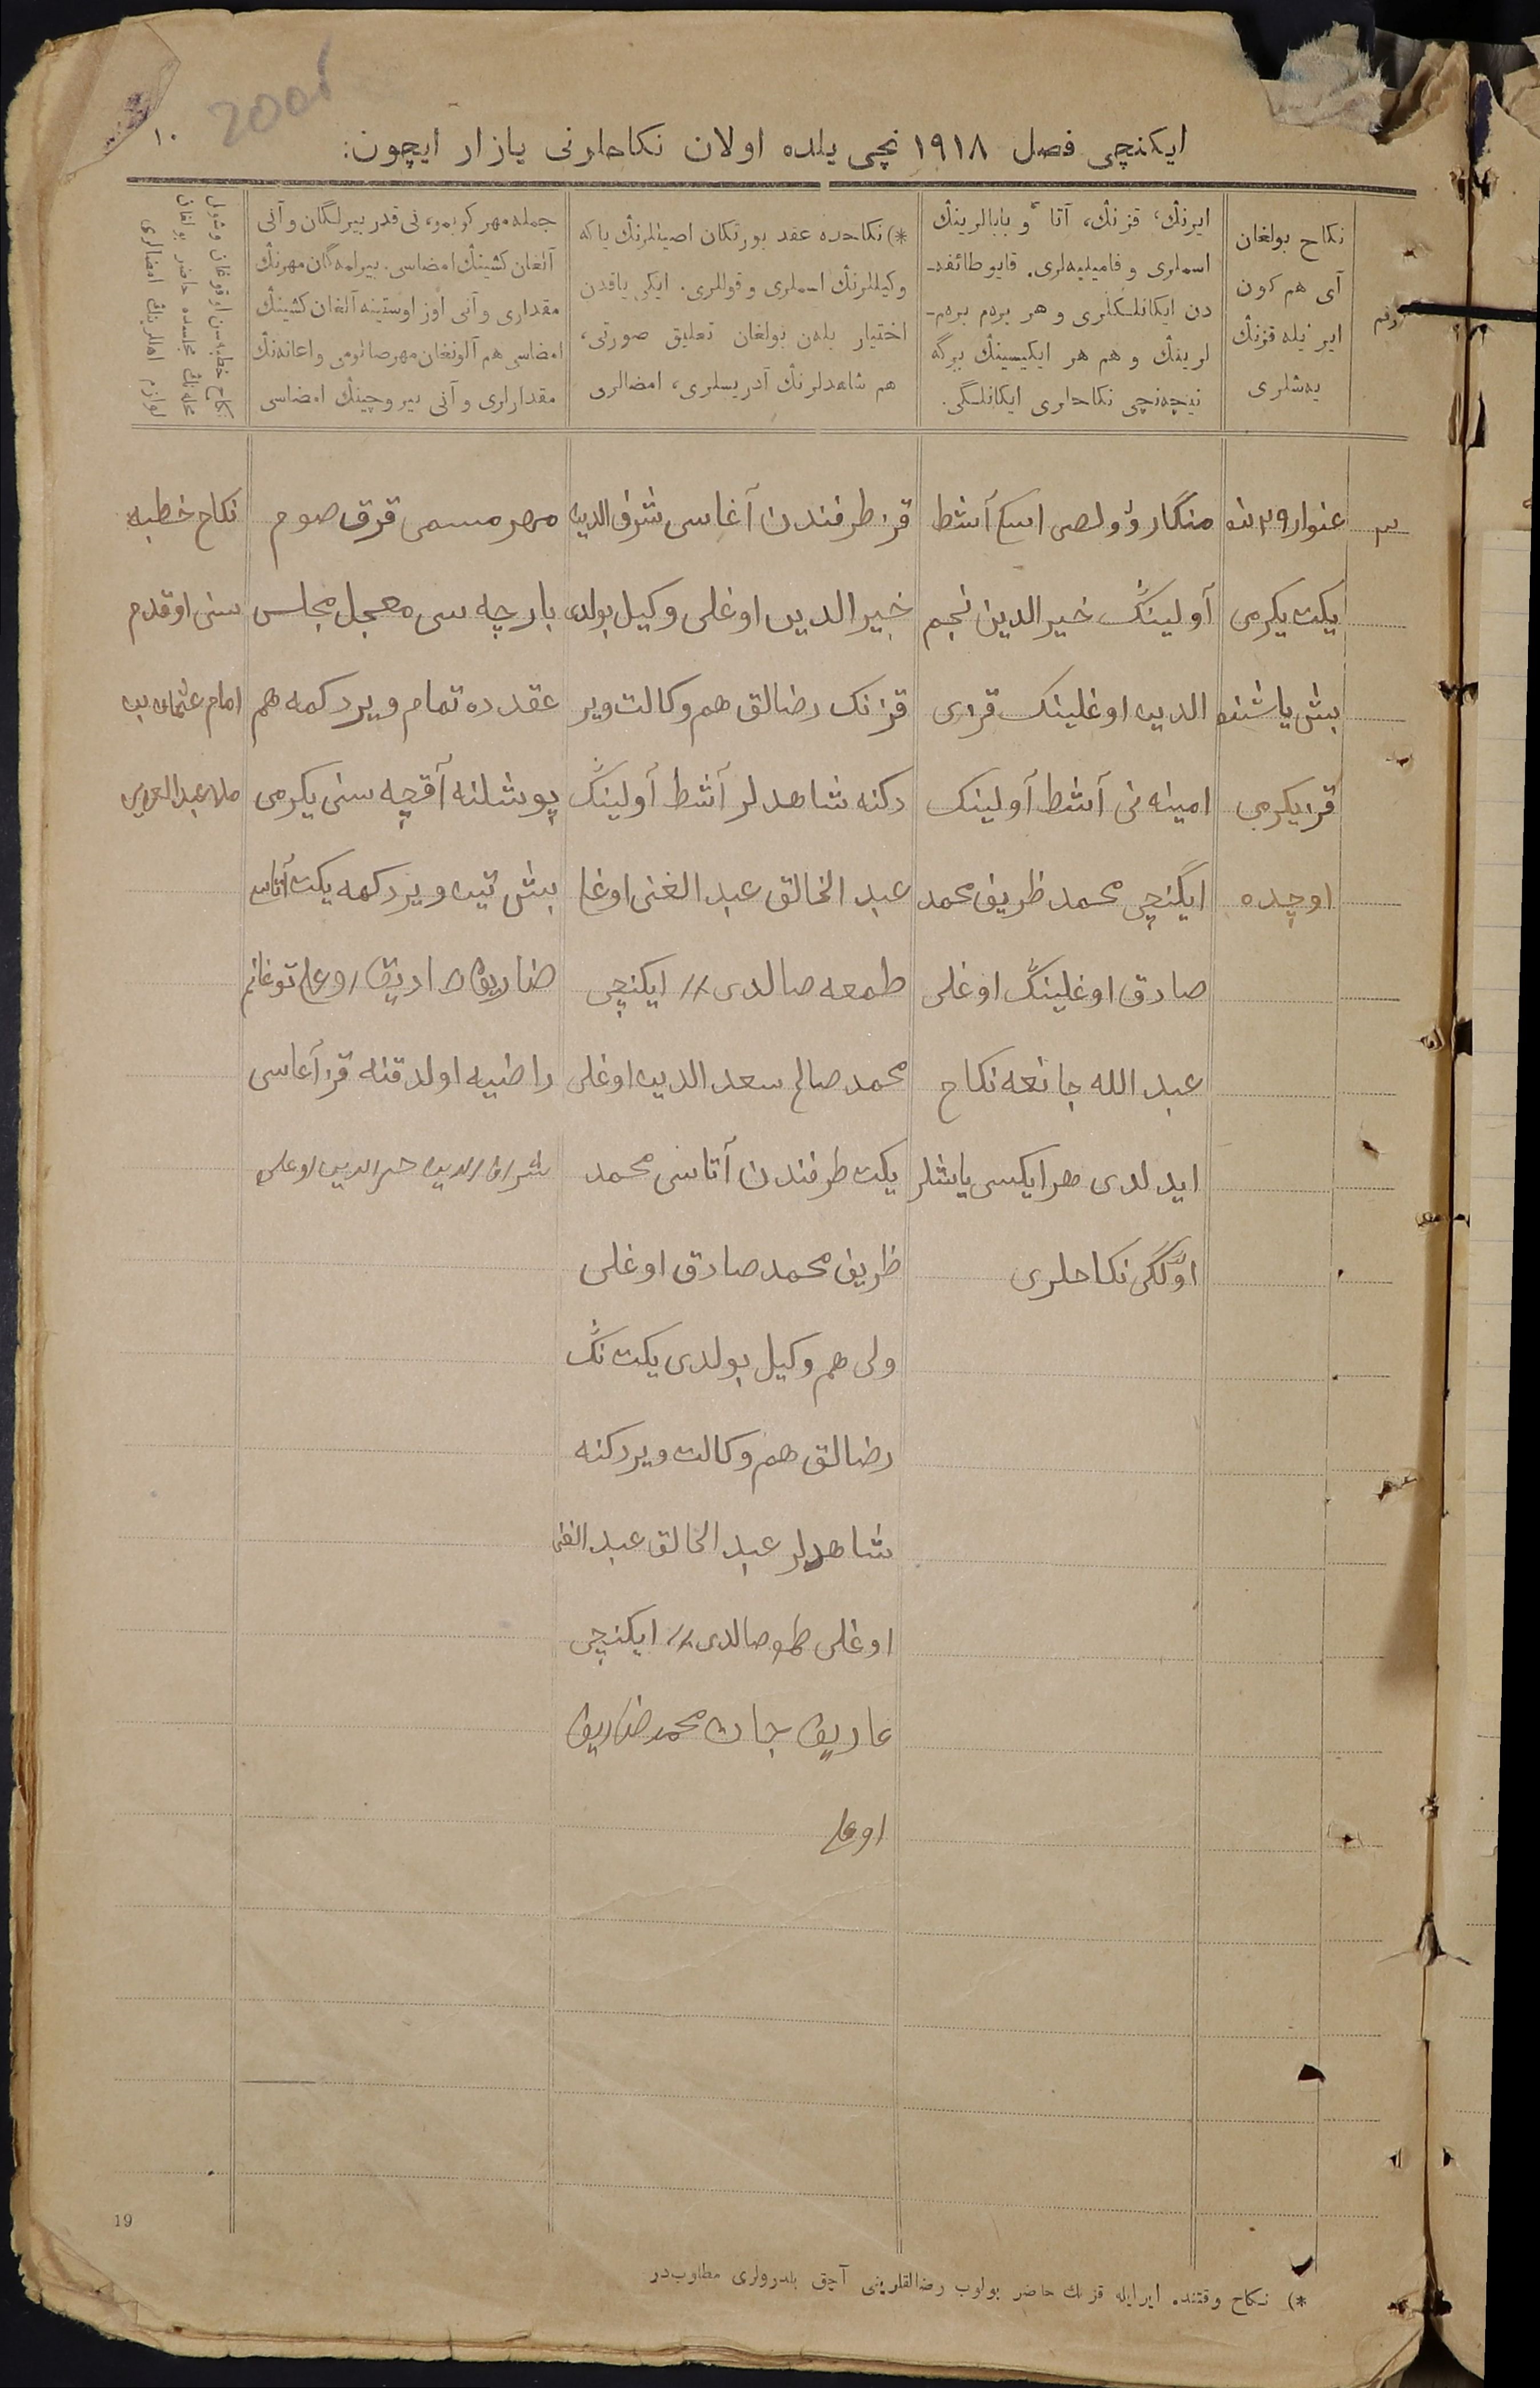 2001
١٠
ایكنچی فصل ١٩١٨ نچی یلده اولان نكاحلرنی یازار ایچون:
رقم
نكاح بولغان
آی هم كون
ایر ئیله قزنڭ
یەشلری
ایرنڭ، قزنڭ، آتا و بابالرینڭ
اسملری و فامیلیەلری. قایو طائفه‌-
دن ایكانلكلری و هر برەم برەم-
لرینڭ و هم هر ایكیسینڭ بیرگه
نیچەنچی نكاحلری ایكانلگی.
*) نكاحده عقد یورتكان اصیللرنڭ یاكه
وكیللرنڭ اسملری و قوللری. ایكی یاقدن
اختیار بلەن بولغان تعلیق صورتی،
هم شاهدلرنڭ آدریسلری، امضالری
جمله مهر كوبمو، نی قدر بیرلگان و آنی
آلغان كشینڭ امضاسی. بیرلمه‌گان مهرنڭ
مقداری و آنی اوز اوستینه آلغان كشینڭ
امضاسی هم آلونغان مهر صانومی و اعانه‌نڭ
مقدارلری و آنی بیروچینڭ امضاسی
نكاح خطبه‌سن اوقوغان وشول
محله‌نڭ مجلسده حاضر بولغان
لوازم اهللرینڭ امضالری
٣
غنوار ٢٩ نده
یكت یكرمی
بش یاشنده
قز یكرمی
اوچده
منگار ؤولصی اسكی آشط
أولینڭ خیرالدین نجم
الدین اوغلینڭ قزی
امینه نی آشط أولینڭ
ایكنچی محمد ظریف محمد
صادق اوغلینڭ اوغلی
عبد الله جانغه نكاح
ایدلدی هر ایكسی یاشلر
اوّلگی نكاحلری
قز طرفندن آغاسی شرف الدین
خیرالدین اوغلی وكیل بولدی
قزنڭ رضالق هم وكالت ویر
دكنه شاهدلر آشط أولینڭ
عبد الخالق عبد الغنی اوغلی
طمغه صالدی // ایكنچی
محمد صالح سعد الدین اوغلی
یكت طرفندن آتاسی محمد
ظریف محمد صادق اوغلی
ولی هم وكیل بولدی یكت نڭ
رضالق هم وكالت ویردكنه
شاهدلر عبد الخالق عبد الغنی
اوغلی طمغه صالدی // ایكنچی
عاریف جان محمد ضاریف
اوغلی
مهر مسمی قرق صوم
بارچه سی معجل مجلس
عقدده تمام ویردكمه هم
پوشلنه آقچه سنی یكرمی
بش تین ویردكمه یكت آتاسی
ضاریف صادیق اوغلی توغانم
راضیه اولدقنه قز آغاسی
شراف الدین خیرالدین اوغلی
نكاح خطبه
سنی اوقدم
امام عثمان بن
ملا عبد العزیز
19
*) نكاح وقتنده ایر ایله قزنڭ حاضر بولوب رضالقلرینی آچق بلدرولری مطلوب‌در